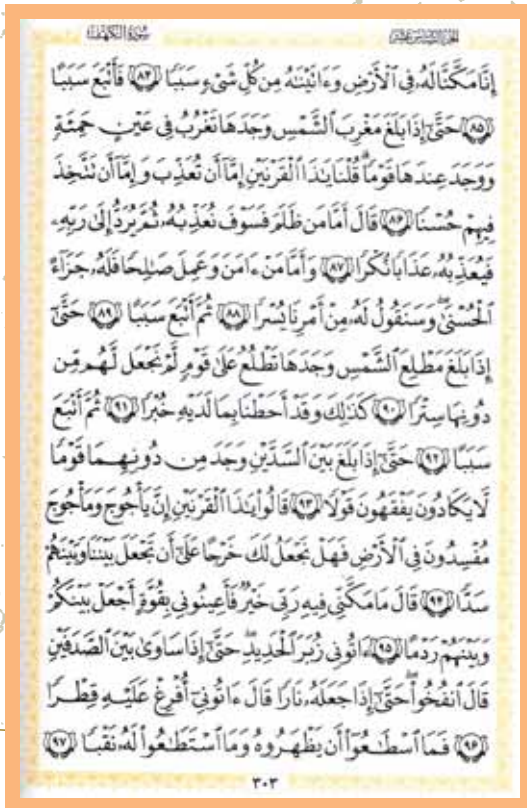 الجزء السادس عشر سورة الكهف
إِنَّا مَكَّنَّا لَهُۥ فِي ٱلْأَرْضِ وَءَاتَيْنَٰهُ مِن كُلِّ شَيْءٍ سَبَبًا ٨٤ فَأَتْبَعَ سَبَبًا
٨٥ حَتَّىٰٓ إِذَا بَلَغَ مَغْرِبَ ٱلشَّمْسِ وَجَدَهَا تَغْرُبُ فِي عَيْنٍ حَمِئَةٍ
وَوَجَدَ عِندَهَا قَوْمًاۗ قُلْنَا يَٰذَا ٱلْقَرْنَيْنِ إِمَّآ أَن تُعَذِّبَ وَإِمَّآ أَن تَتَّخِذَ
فِيهِمْ حُسْنًا ٨٦ قَالَ أَمَّا مَن ظَلَمَ فَسَوْفَ نُعَذِّبُهُۥ ثُمَّ يُرَدُّ إِلَىٰ رَبِّهِۦ
فَيُعَذِّبُهُۥ عَذَابًا نُّكْرًا ٨٧ وَأَمَّا مَنْ ءَامَنَ وَعَمِلَ صَٰلِحًا فَلَهُۥ جَزَآءً
ٱلْحُسْنَىٰۖ وَسَنَقُولُ لَهُۥ مِنْ أَمْرِنَا يُسْرًا ٨٨ ثُمَّ أَتْبَعَ سَبَبًا ٨٩ حَتَّىٰٓ
إِذَا بَلَغَ مَطْلِعَ ٱلشَّمْسِ وَجَدَهَا تَطْلُعُ عَلَىٰ قَوْمٍ لَّمْ نَجْعَل لَّهُم مِّن
دُونِهَا سِتْرًا ٩٠ كَذَٰلِكَ وَقَدْ أَحَطْنَا بِمَا لَدَيْهِ خُبْرًا ٩١ ثُمَّ أَتْبَعَ
سَبَبًا ٩٢ حَتَّىٰٓ إِذَا بَلَغَ بَيْنَ ٱلسَّدَّيْنِ وَجَدَ مِن دُونِهِمَا قَوْمًا
لَّا يَكَادُونَ يَفْقَهُونَ قَوْلًا ٩٣ قَالُوا۟ يَٰذَا ٱلْقَرْنَيْنِ إِنَّ يَأْجُوجَ وَمَأْجُوجَ
مُفْسِدُونَ فِي ٱلْأَرْضِ فَهَلْ نَجْعَلُ لَكَ خَرْجًا عَلَىٰٓ أَن تَجْعَلَ بَيْنَنَا وَبَيْنَهُمْ
سَدًّا ٩٤ قَالَ مَا مَكَّنِّي فِيهِ رَبِّي خَيْرٌ فَأَعِينُونِي بِقُوَّةٍ أَجْعَلْ بَيْنَكُمْ
وَبَيْنَهُمْ رَدْمًا ٩٥ ءَاتُونِي زُبَرَ ٱلْحَدِيدِۖ حَتَّىٰٓ إِذَا سَاوَىٰ بَيْنَ ٱلصَّدَفَيْنِ
قَالَ ٱنفُخُوا۟ۖ حَتَّىٰٓ إِذَا جَعَلَهُۥ نَارًا قَالَ ءَاتُونِيٓ أُفْرِغْ عَلَيْهِ قِطْرًا
٩٦ فَمَا ٱسْطَٰعُوٓا۟ أَن يَظْهَرُوهُ وَمَا ٱسْتَطَٰعُوا۟ لَهُۥ نَقْبًا ٩٧
٣٠٣